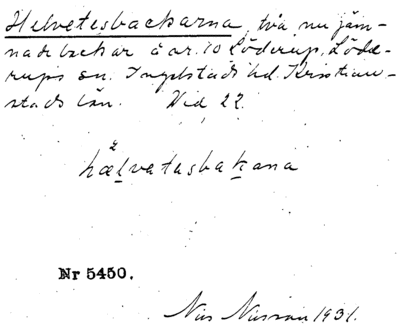 Helvetesbackarna, två, nu jäm-
nade backar å ar. 10 Löderup, Löde-
rups sn. Ingelstads hd. Kristian-
stads län. Vid 22.
hælvatasbakana
Nr 5450.
Nils Nilsson 1931.